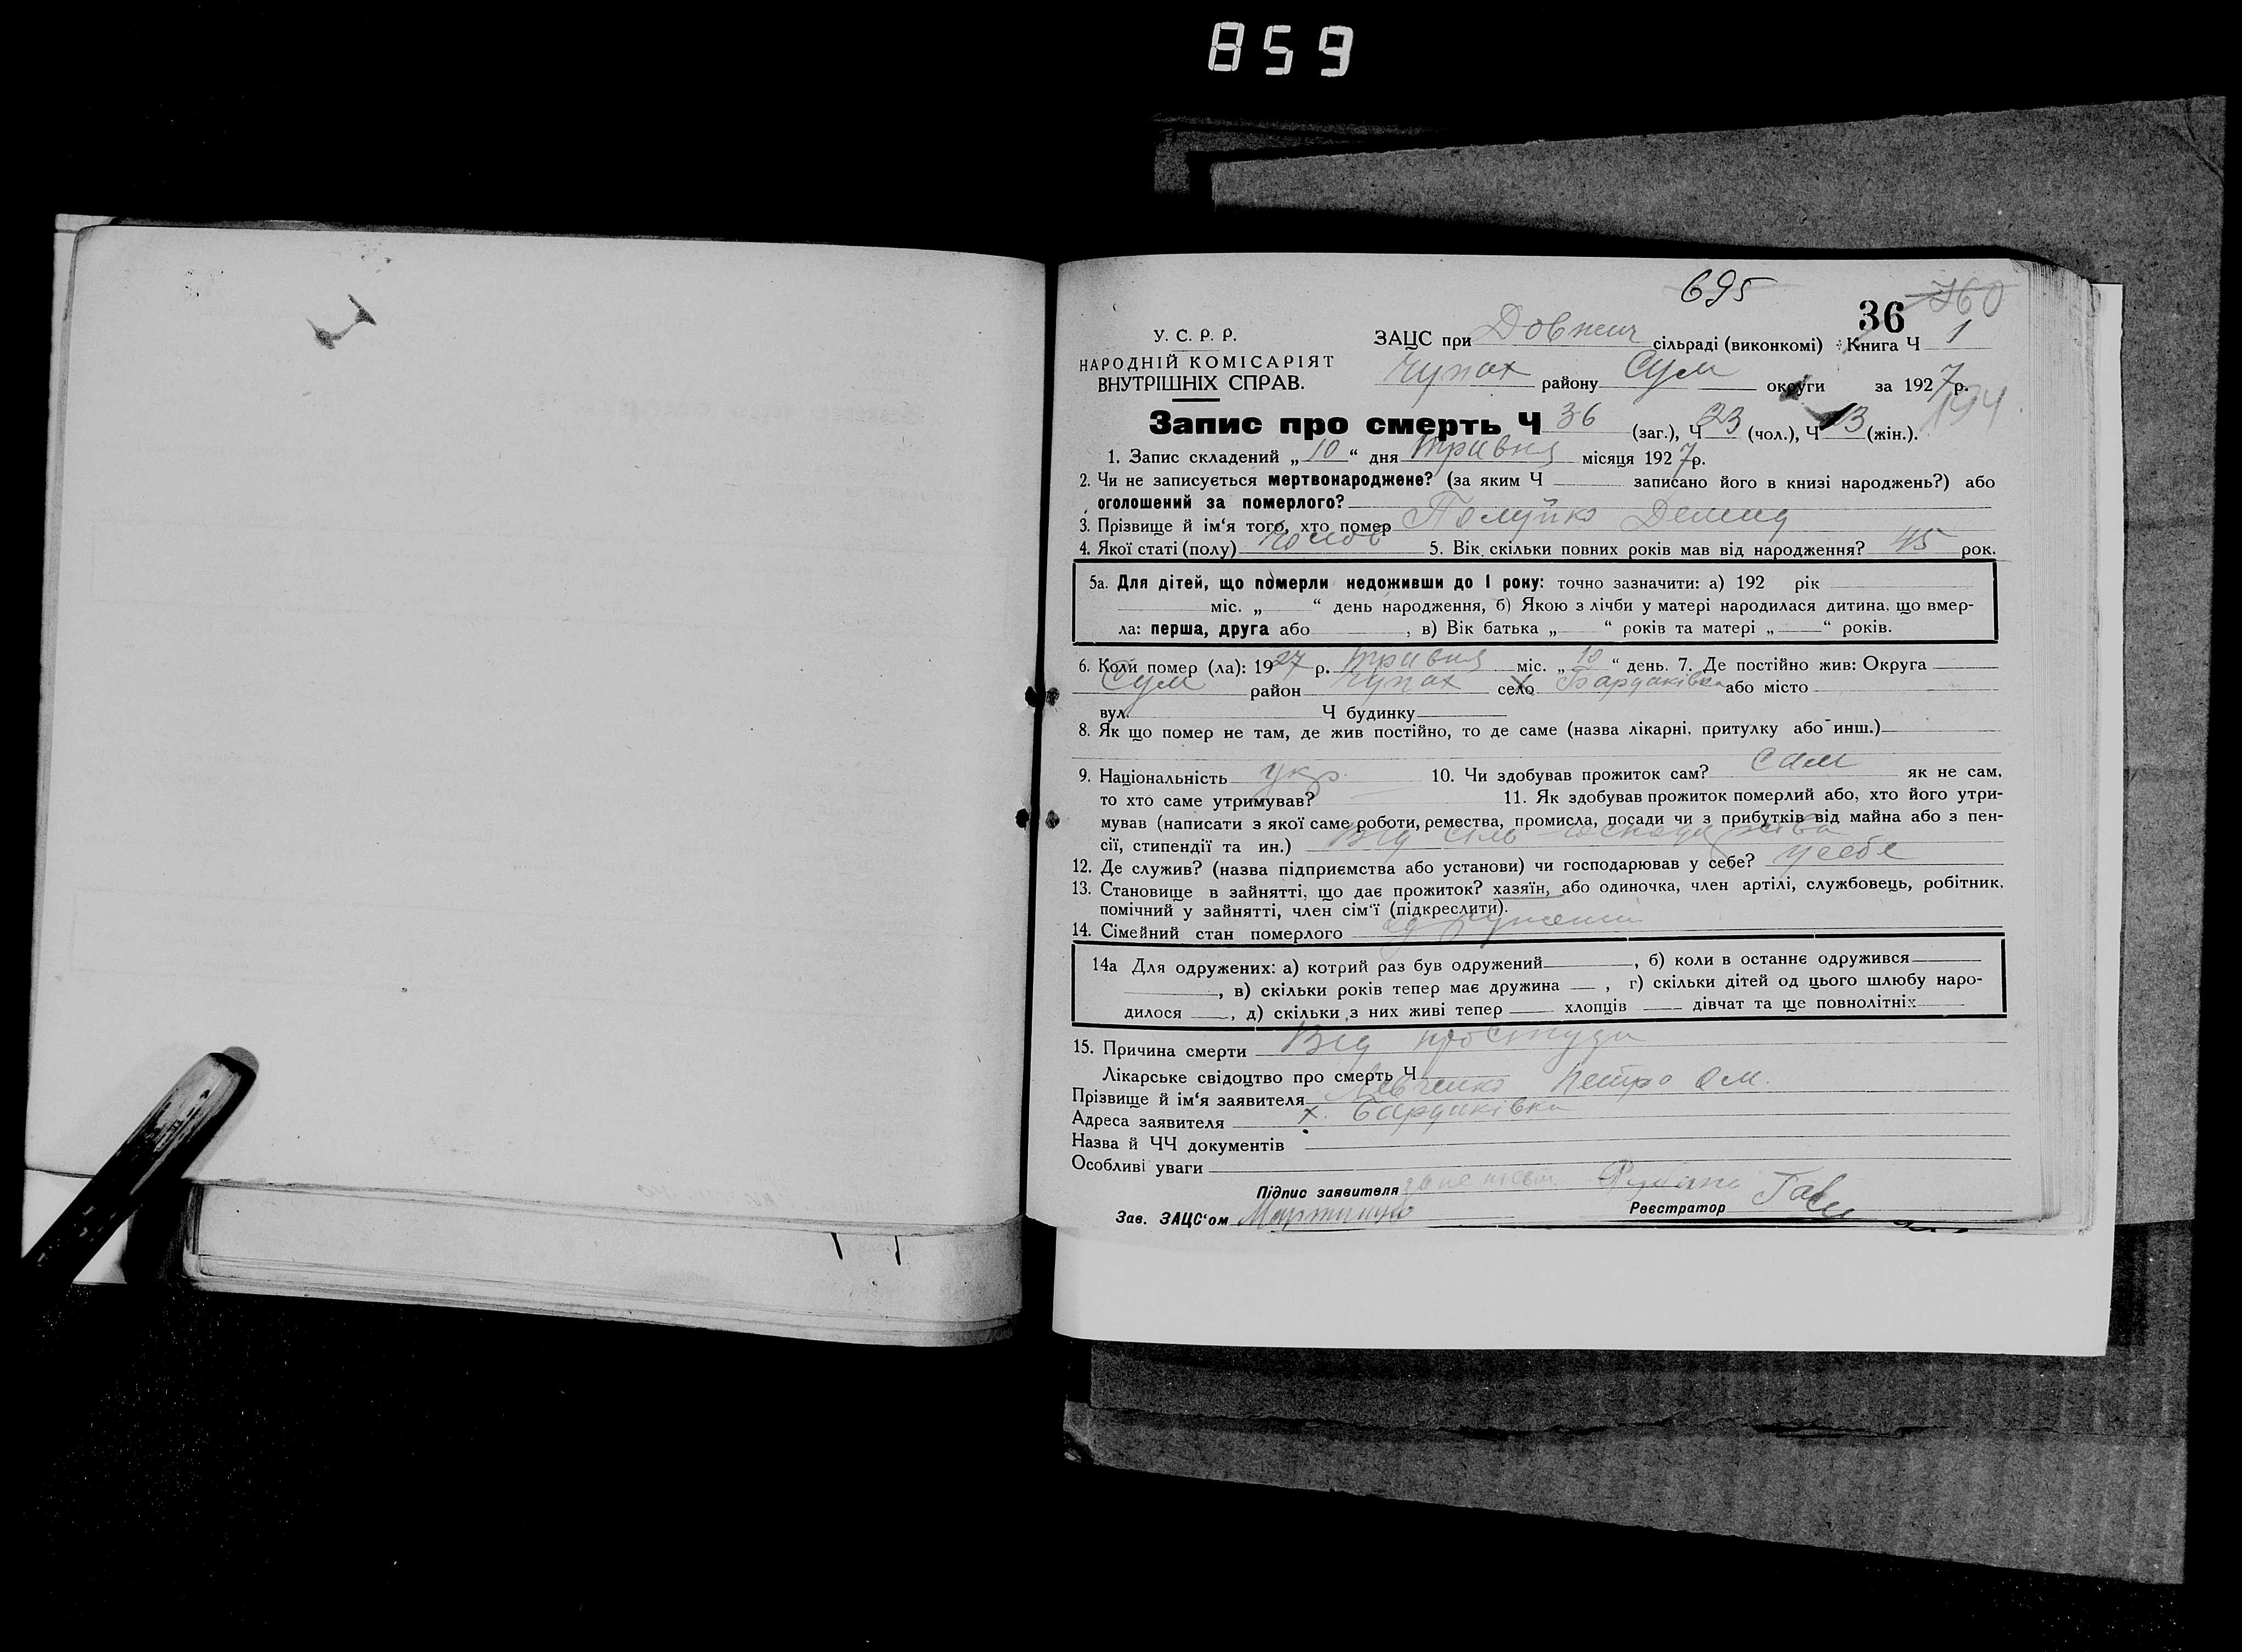 859
695
36 760
У. С. Р. Р. ЗАЦС при Довжич сільраді (виконкомі) Книга Ч 1
НАРОДНІЙ КОМІСАРІЯТ
ВНУТРІШНІХ СПРАВ. Чупах району Сум округи за 1927р.
194
Запис про смерть Ч 36 (заг.), Ч 23 (чол.), Ч 13 (жін.).
1. Запис складений „ 10 “ дня травня місяця 1927р.
2. Чи не записується мертвонароджене? (за яким Ч записано його в книзі народжень?) або
оголошений за померлого?
3. Прізвище й ім‘я того, хто помер Полуйко Демид
4. Якої статі (полу) чолов 5. Вік скільки повних років мав від народження? 45 рок.
5а. Для дітей, що померли недоживши до 1 року: точно зазначити: а) 192 рік
міс. „ “ день народження, б) Якою з лічби у матері народилася дитина, що вмер-
ла: перша, друга або , в) Вік батька „ “ років та матері „ “ років.
6. Коли помер (ла): 1927 р. травня міс. „ 10 “ день. 7. Де постійно жив: Округа
Сум район Чупах село Х Бардаківка або місто
вул. Ч будинку
8. Як що помер не там, де жив постійно, то де саме (назва лікарні, притулку або инш.)
9. Національність укр. 10. Чи здобував прожиток сам? Сам як не сам,
то хто саме утримував? 11. Як здобував прожиток померлий або, хто його утри-
мував (написати з якої саме роботи, ремества, промисла, посади чи з прибутків від майна або з пен-
сії, стипендії та ин.) Від сіль господарства
12. Де служив? (назва підприємства або установи) чи господарював у себе? у себе
13. Становище в зайнятті, що дає прожиток? хазяїн, або одиночка, член артілі, службовець, робітник,
помічний у зайнятті, член сім‘ї (підкреслити).
14. Сімейний стан померлого одружений
14а Для одружених: а) котрий раз був одружений , б) коли в останнє одружився
, в) скільки років тепер має дружина , г) скільки дітей од цього шлюбу наро-
дилося , д) скільки з них живі тепер хлопців дівчат та ще повнолітніх
15. Причина смерти Від простуди
Лікарське свідоцтво про смерть Ч
Прізвище й ім‘я заявителя Левченко Петро Ом.
Адреса заявителя х. Бардаківка
Назва й ЧЧ документів
Особливі уваги
Підпис заявителя
Зав. ЗАЦС‘ом Реєстратор